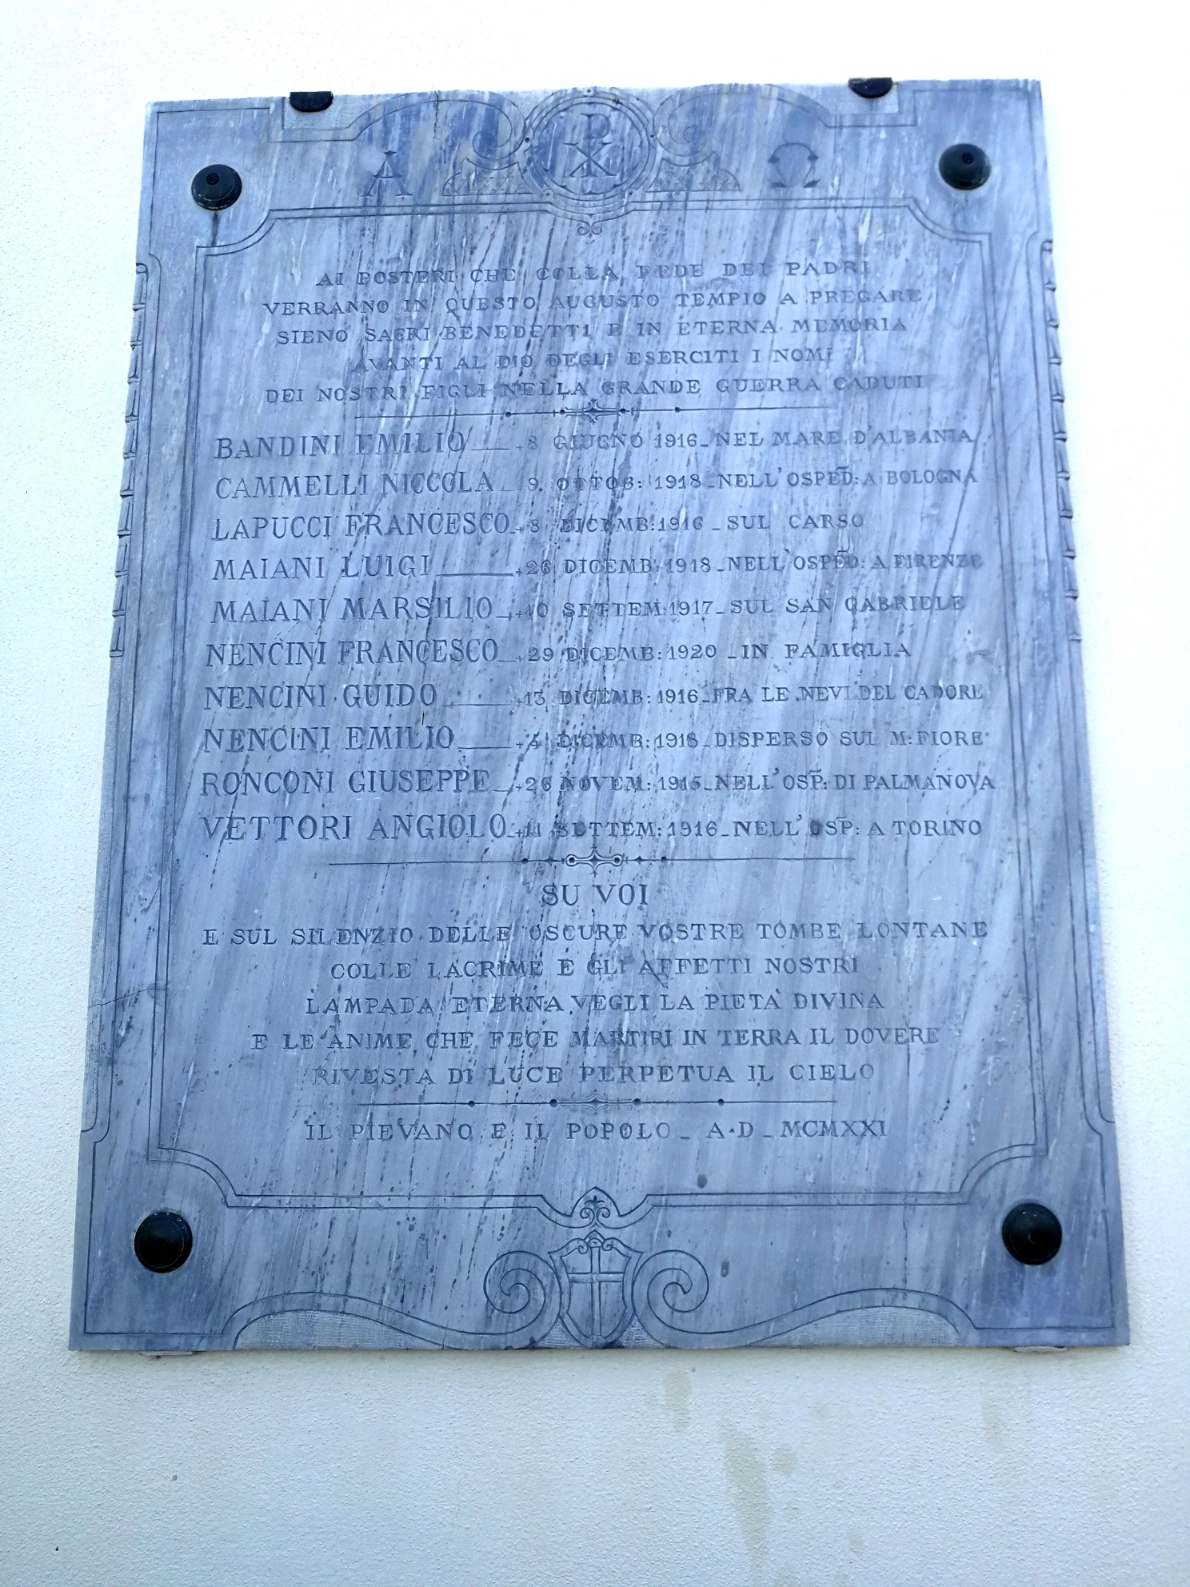 Α ☧ Ω
AI POSTERI CHE COLLA FEDE DEI PADRI
VERRANNO IN QUESTO AUGUSTO TEMPIO A PREGARE
SIENO SACRI BENEDETTI E IN ETERNA MEMORIA
AVANTI AL DIO DEGLI ESERCITI I NOMI
DEI NOSTRI FIGLI NELLA GRANDE GUERRA CADUTI
BANDINI EMILIO + 8 GIUGNO 1916 - NEL MARE D'ALBANIA
CAMMELLI NICCOLA 9. OTTOB: 1918 - NELL'OSPED: A BOLOGNA
LAPUCCI FRANCESCO + 8 DICEMB: 1916 - SUL CARSO
MAIANI LUIGI + 26 DICEMB: 1918 - NELL'OSPED: A FIRENZE
MAIANI MARSILIO + 10 SETTEM: 1917 - SUL SAN GABRIELE
NENCINI FRANCESCO + 29 DICEMB: 1920 - IN FAMIGLIA
NENCINI GUIDO + 13 DICEMB: 1916 - FRA LE NEVI DEL CADORE
NENCINI EMILIO + DICEMB: DISPERSO SUL M: FIORE
RONCONI GIUSEPPE + 26 NOVEM: 1915 - NELL'OSP: DI PALMANOVA
VETTORI ANGIOLO + 11 SETTEM: 1916 - NELL'OSP: A TORINO
SU VOI
E SUL SILENZIO DELLE OSCURE VOSTRE TOMBE LONTANE
COLLE LACRIME E GLI AFFETTI NOSTRI
LAMPADA ETERNA VEGLI LA PIETA' DIVINA
E LE ANIME CHE FECE MARTIRI IN TERRA IL DOVERE
RIVESTA DI LUCE PERPETUA IL CIELO
IL PIEVANO E IL POPOLO - A·D - MCMXXI